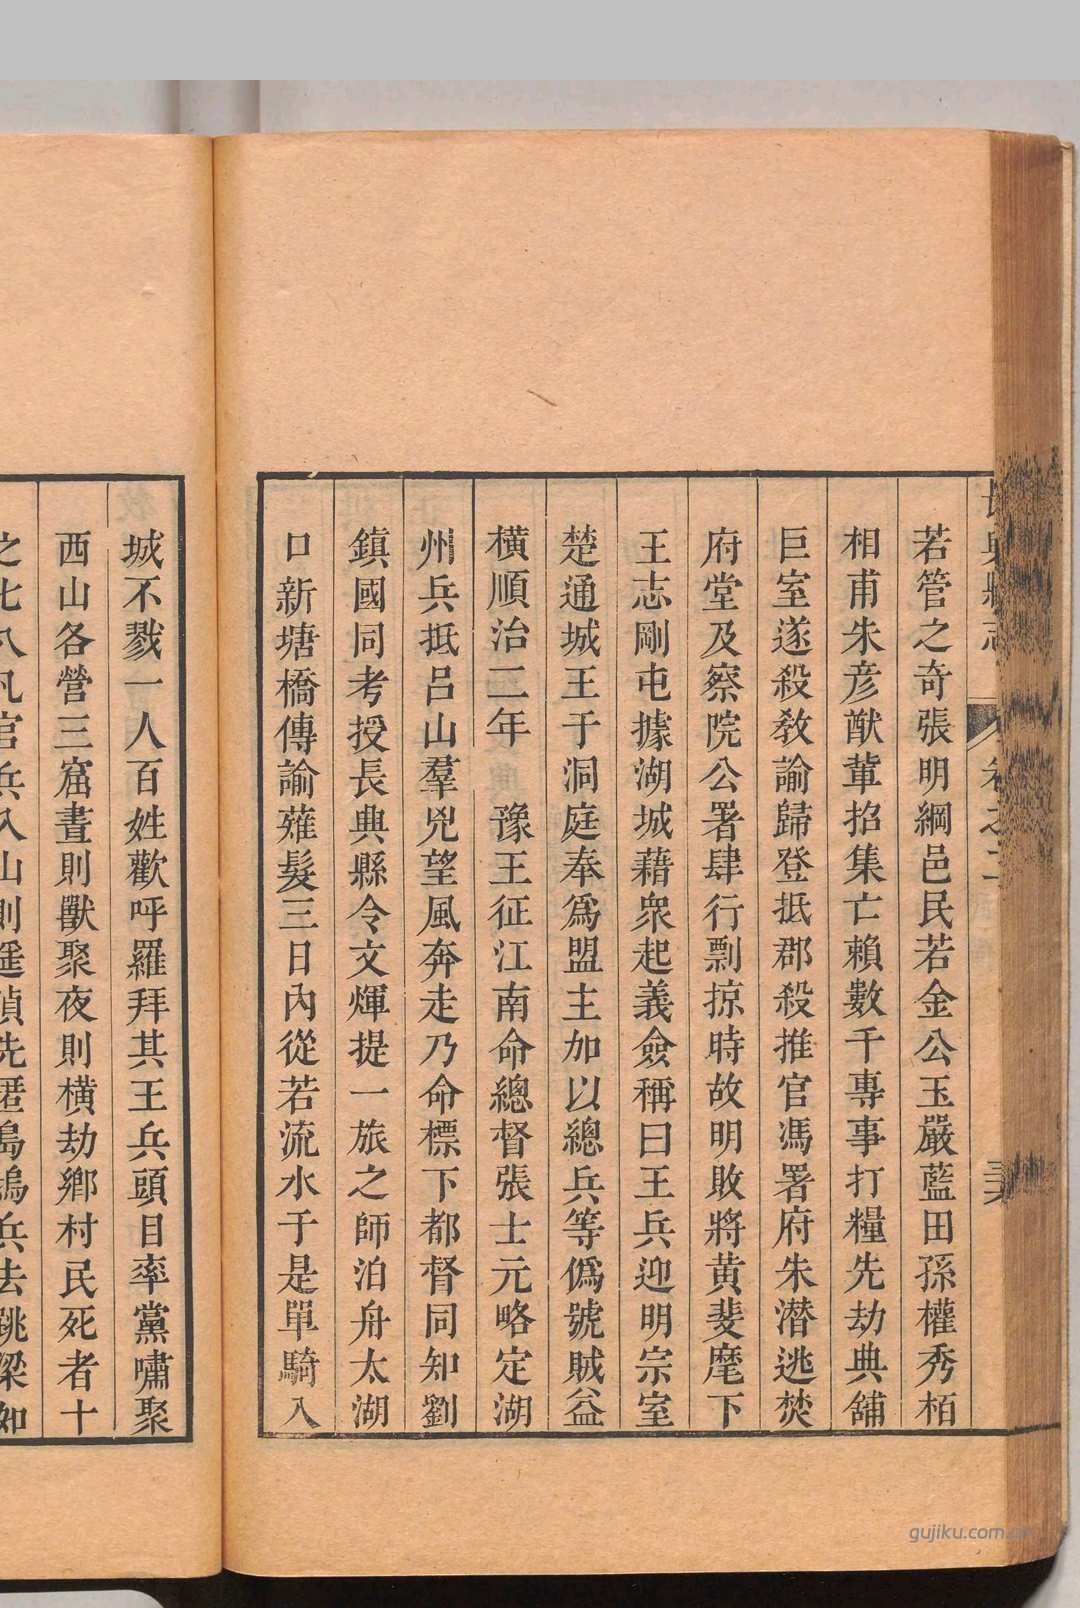 卷之二
若管之奇張明綱邑民若金公玉嚴藍田孫權秀栢
相甫朱彦猷輩招集亡賴數千專事打糧先劫典舖
巨室遂殺教諭歸登抵郡殺推官馮署府朱潜逃焚
府堂及察院公署肆行剽掠時故明敗將黃斐麾下
王志剛屯據湖城藉衆起義僉稱曰王兵迎明宗室
楚通城王于洞庭奉爲盟主加以總兵等僞號賊益
橫順治二年 豫王征江南命總督張士元略定湖
州兵抵呂山羣兇望風奔走乃命標下都督同知劉
鎮國同考授長興縣令文煇提一旅之師泊舟太湖
口新塘橋傳諭薙髮三日內從若流水于是單騎入
城不戮一人百姓歡呼羅拜其王兵頭目率黨嘯聚
西山各營三窟晝則獸聚夜則橫劫鄉村民死者十
之七八凡官兵入山則遥偵先匿島塢兵去跳梁如
gujiku.com.cn